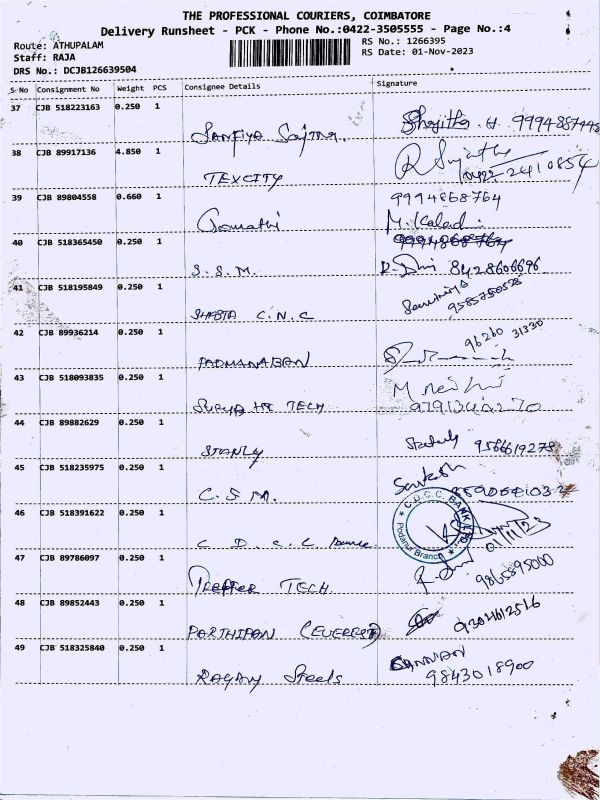 THE PROFESSIONAL COURIERS, COIMBATORE
Delivery Runsheet - PCK - Phone No.:0422-3505555 - Page No.:4
Route: ATHUPALAM
RS No.: 1266395
Staff: RAJA
RS Date: 01-Nov-2023
DRS No.: DCJB126639504
S No Consignment No Weight PCS Consignee Details Signature
37 CJB 518223163 0.250 1
38 CJB 89917136 4.850 1
TEXCITY
39 CJB 89804558 0.660 1 9994868764
Gomathi M. Kalad.
40 CJB 518365450 0.250 1 9994868764
S.S.M. 8428606696
41 CJB 518195849 0.250 1
C.N.C
42 CJB 89936214 0.250 1 96260 31330
PADMANABAN
43 CJB 518093835 0.250 1
SURYA HI TECH
44 CJB 89882629 0.250 1
STANLY
45 CJB 518235975 0.250 1
C.S.M.
46 CJB 518391622 0.250 1 C.D.C.C. BANK LTD. Podanur Branch
C D. C. C 01/11/23
47 CJB 89786097 0.250 1
TECH. 9865895000
48 CJB 89852443 0.250 1
PARTHIPAN (EVEREST)
49 CJB 518325840 0.250 1 KANNAN
Steels 9843018900